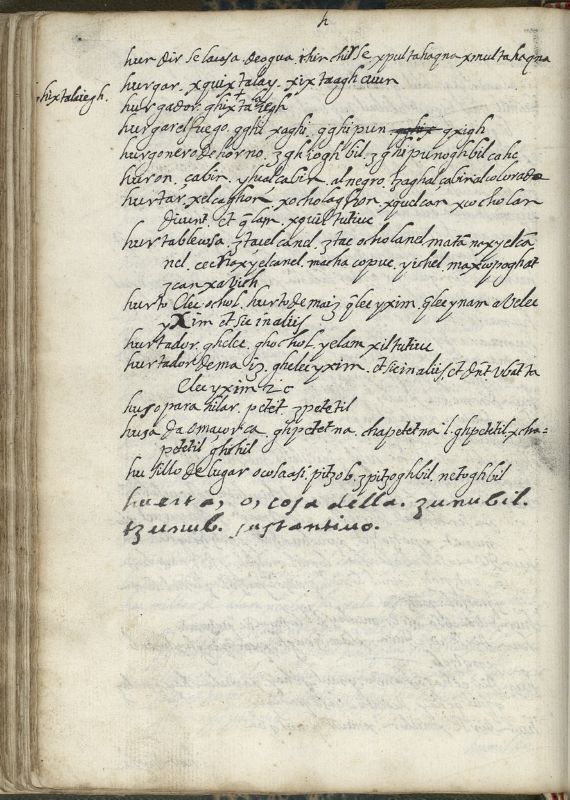 h
hundirse la cosa de agua. ihin chirse xpultahaqna xmultahaqna
hurgar. xquixtalay. xixtaagh cuun
ihixtalaiegh.
hurgador. ghixtaiegh
hurgar el fuego. qghi xaghi. qghipun qxigh
hurgonero de horno. zghioghbil. zghipunoghbil cahc
huron. cabin. yhualcabin. al negro. tzaghal cabin al colorado
hurtar. xelcaghon. xocholaghon. xquelcan xuocholan
dicunt et qlaȷ̄. xquiltutiuc
hurtable cosa. ztauelcanel. ztac ocholanel matā naxyelcā
nel. cecħaxyelcanel. macha copuc. yichel. maxcopoghat
zcan xabich
hurto. Elec. ochol. hurto de maiz qlec yxim. qlec ynam a Velec
yxim et sic in aliis
hurtador. ghelec. ghochol. yelam xiltutiuc
hurtador de maiz. ghelec yxim. et sic in aliis, et dn̄t Vbatta
Elec yxim 2c
huso para hilar. petet. zpetetil
husada o maçorca. ghpetetna. chapetetnail. ghpetetil. xcha=
petetil ghchil
husillo de lugar o cosa asi. pitzob. zpitzoghbil. netoghbil
huerta, o, cosa della. zunubil.
tzunub. sustantiuo.